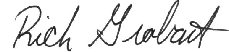 Rich Grobart